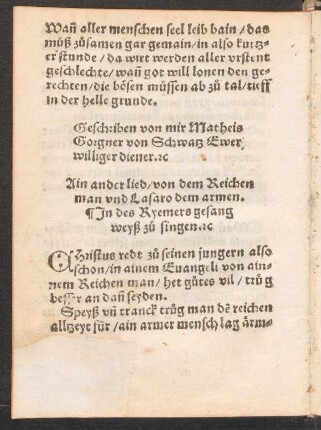 Wañ aller menschen seel leib bain / das
můß zůsamen gar gemain / in also kurtz-
er stunde / da wirt werden aller vrstent
geschlechte / wañ got will lonen den ge-
rechten / die bösen müssen ab zů tal / tieff
in der helle grunde.
Geschriben von mir Matheis
Gorgner von Schwatz Ewer
williger diener.ꝛc
Ain ander lied / von dem Reichen
man vnd Lasaro dem armen.
¶In des Ryemers gesang
weyß zů singen.ꝛc
CHristus redt zů seinen jungern also
schon / in ainem Euangeli von ain-
nem Reichen man / het gůtes vil / trůg
besser an dañ seyden.
Speyß vñ tranck trůg man dē reichen
allzeyt für / ain armer mensch lag ärm-